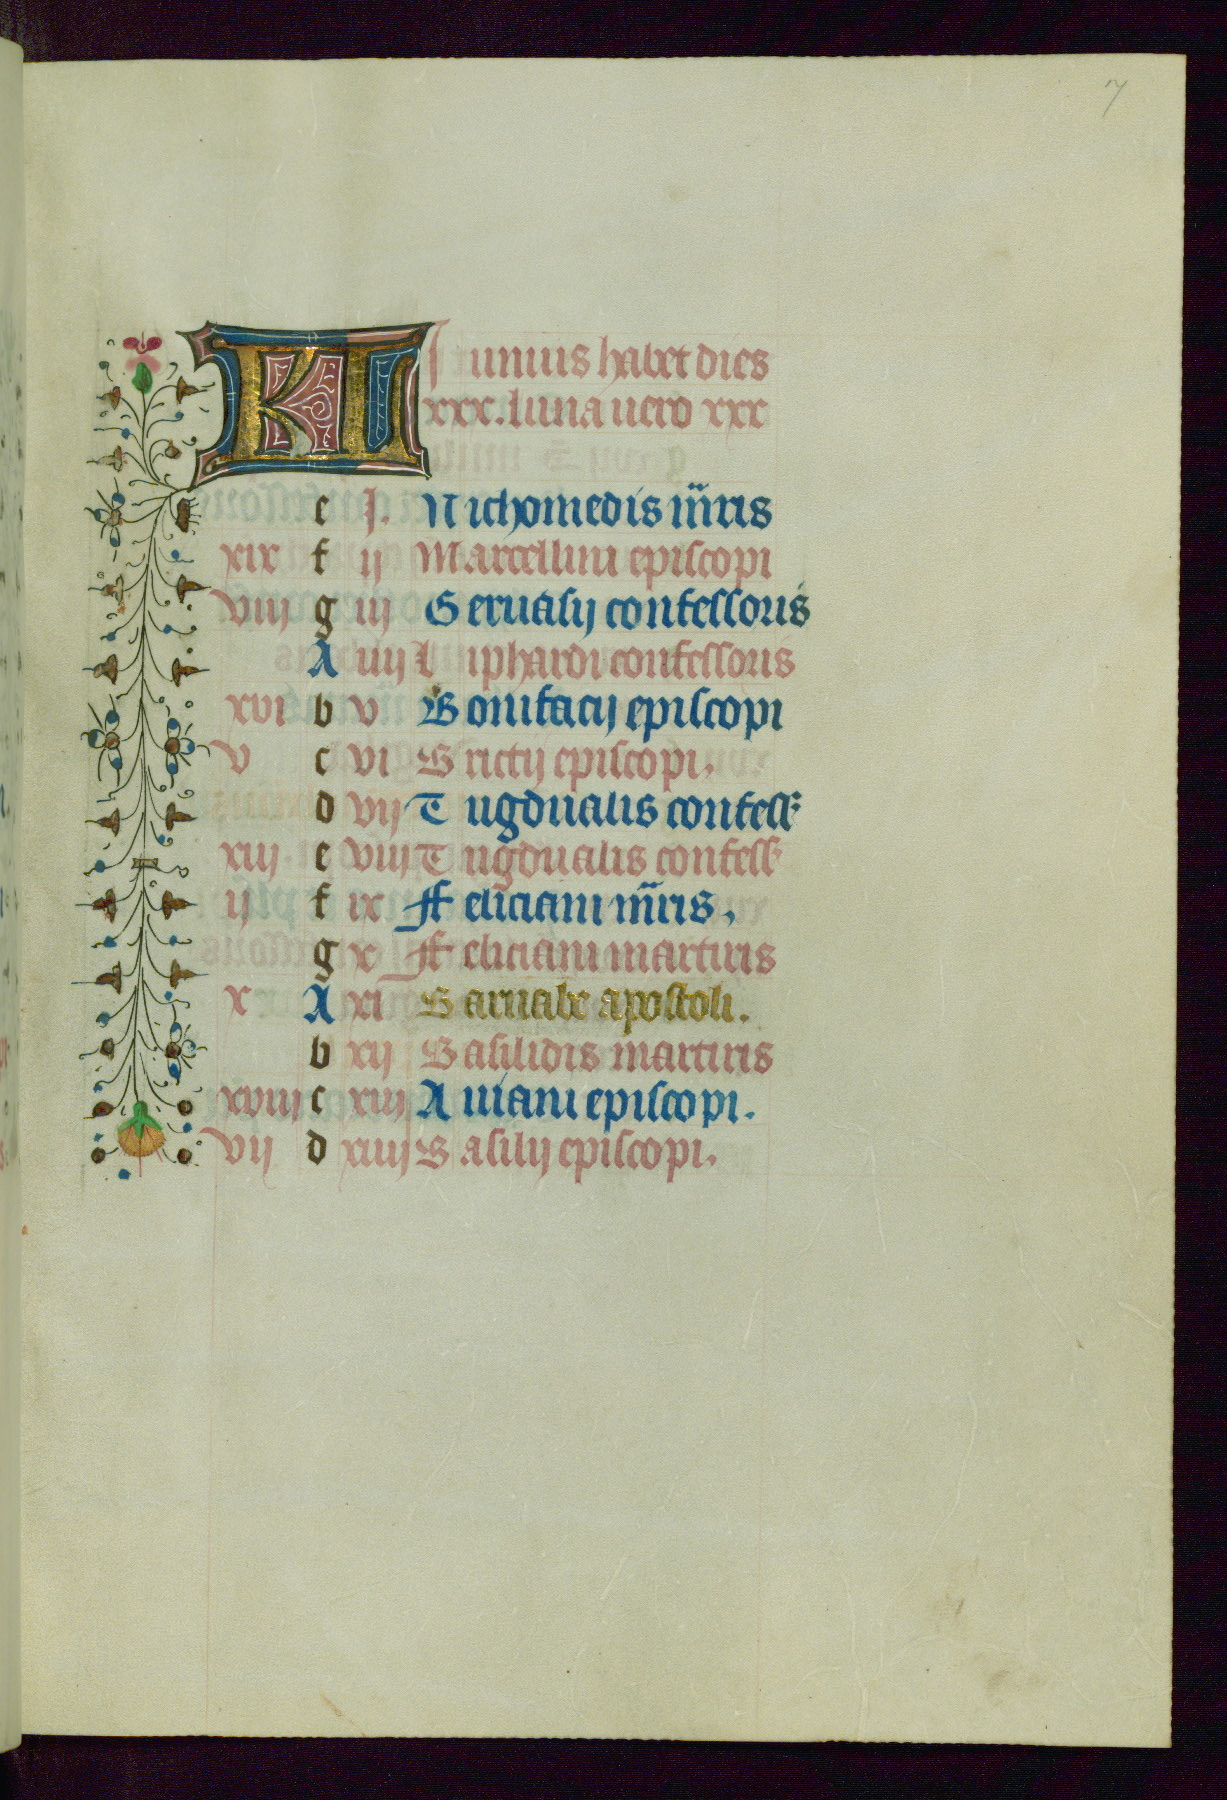 7
Kl Junius habet dies
xxx. luna uero xxx
e j. Nichomedis m̄ris
xix f ij Marcellini episcopi
viij g iij Geruasij confessoris
A iiij Liphardi confessoris
xvi b v Bonifacij episcopi
v c vi Srictij episcopi.
d vij Tugdualis confess
xiij e viij Tugdualis confess
ij f ix Feliciani m̄ris.
g x Feliciani martiris
x A xi Barnabe apostoli.
b xij Basilidis martiris
xviij c xiij Auiani episcopi.
vij d xiiij Basilij episcopi.